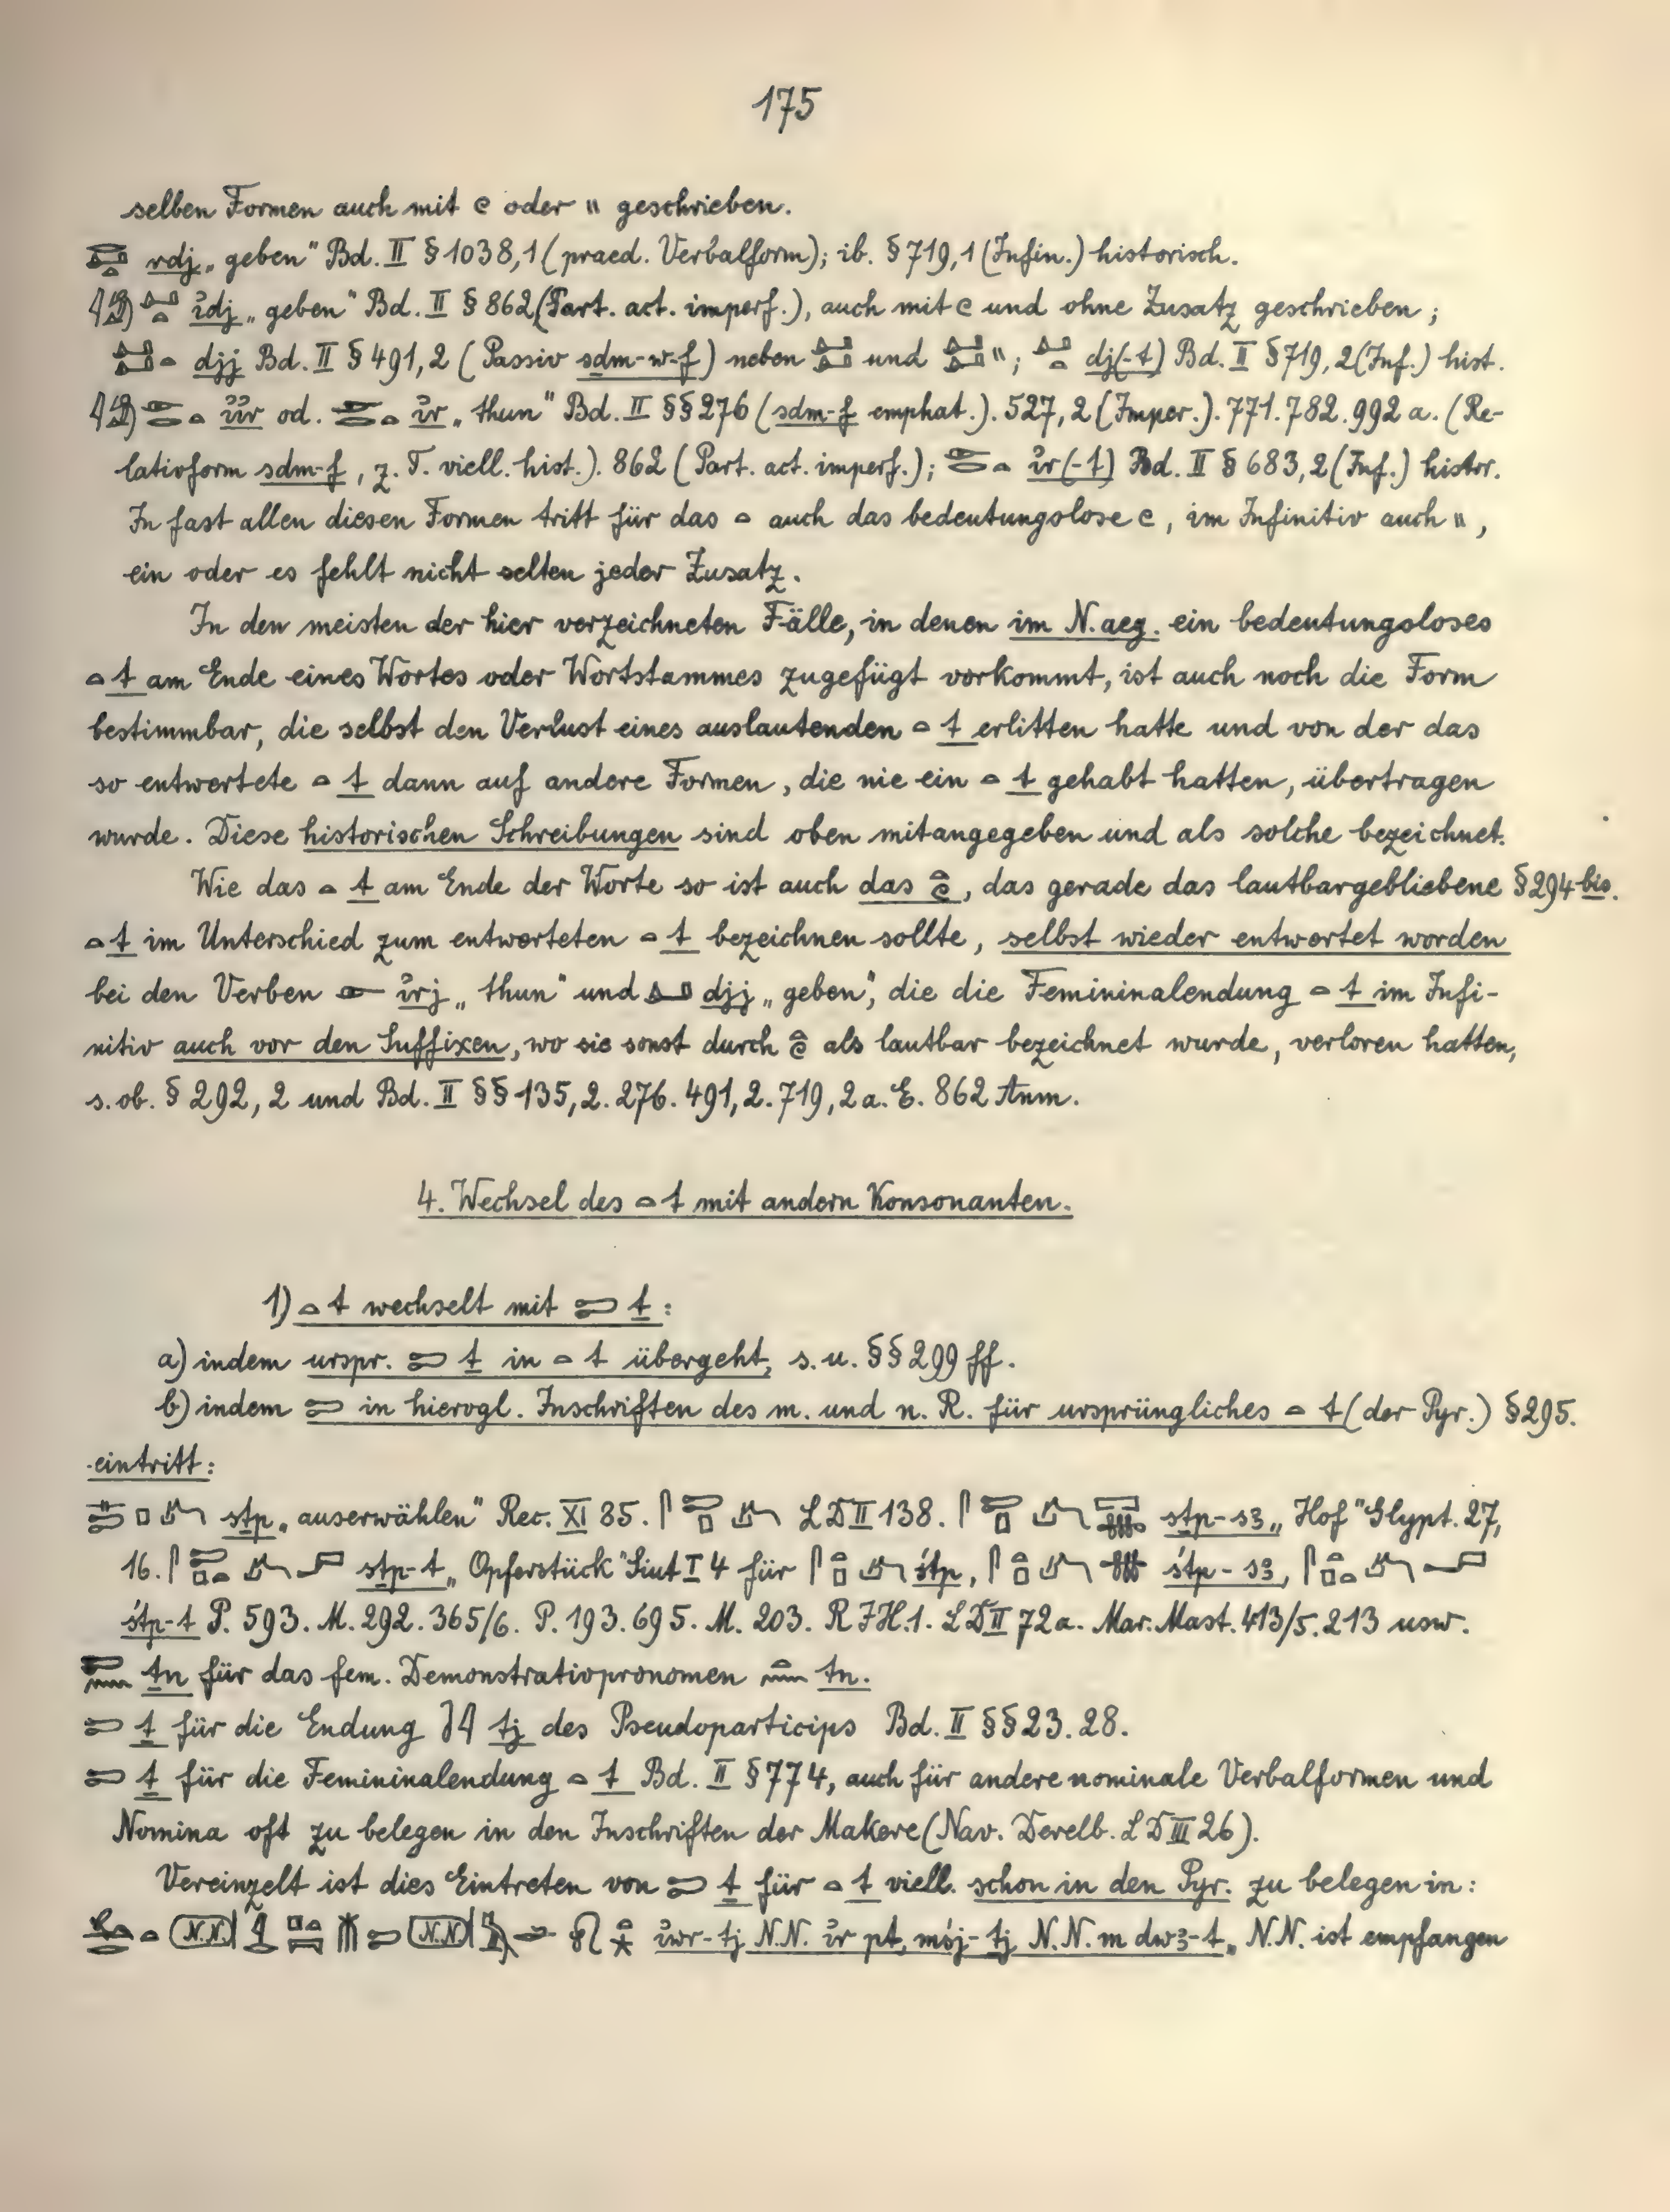 175
selben Formen auch mit 𓏲 oder 𓏭 geschrieben.
rdj „geben" Bd. II § 1038,1 (praed. Verbalform); ib. § 719,1 (Infin.) historisch.
ı͗dj „geben" Bd. II § 862 (Part. act. imperf.), auch mit 𓏲 und ohne Zusatz geschrieben;
djj Bd. II § 491,2 (Passiv sdm-w-f) neben und 𓏭; dj(-t) Bd. II § 719,2 (Inf.) hist.
ı͗ı͗r od. ı͗r „thun" Bd. II §§ 276 (sdm-f emphat.). 527,2 (Imper.). 771. 782. 992 a. (Re-
lativform sdm-f, z. T. viell. hist.). 862 (Part. act. imperf.); ı͗r(-t) Bd. II § 683,2 (Inf.) histor.
In fast allen diesen Formen tritt für das 𓏏 auch das bedeutungslose 𓏲, im Infinitiv auch 𓏭,
ein oder es fehlt nicht selten jeder Zusatz.
In den meisten der hier verzeichneten Fälle, in denen im N. aeg. ein bedeutungsloses
𓏏 t am Ende eines Wortes oder Wortstammes zugefügt vorkommt, ist auch noch die Form
bestimmbar, die selbst den Verlust eines auslautenden 𓏏 t erlitten hatte und von der das
so entwertete 𓏏 t dann auf andere Formen, die nie ein 𓏏 t gehabt hatten, übertragen
wurde. Diese historischen Schreibungen sind oben mitangegeben und als solche bezeichnet.
Wie das 𓏏 t am Ende der Worte so ist auch das 𓏏𓏲, das gerade das lautbargebliebene § 294 bis.
𓏏 t im Unterschied zum entwerteten 𓏏 t bezeichnen sollte, selbst wieder entwertet worden
bei den Verben 𓁹 ı͗rj „thun" und djj „geben", die die Femininalendung 𓏏 t im Infi-
nitiv auch vor den Suffixen, wo sie sonst durch 𓏏𓏲 als lautbar bezeichnet wurde, verloren hatten,
s. ob. § 292,2 und Bd. II §§ 135,2. 276. 491,2. 719,2 a. E. 862 Anm.
4. Wechsel des 𓏏 t mit andern Konsonanten.
1) 𓏏 t wechselt mit 𓍿 ṯ:
a) indem urspr. 𓍿 ṯ in 𓏏 t übergeht, s. u. §§ 299 ff.
b) indem 𓍿 in hierogl. Inschriften des m. und n. R. für ursprüngliches 𓏏 t (der Pyr.) § 295.
eintritt:
sṯp „auserwählen" Rec. XI 85. LD II 138. sṯp-s3 „Hof" Glypt. 27,
16. sṯp-t „Opferstück" Siut I 4 für śtp, śtp-s3,
śtp-t P. 593. M. 292. 365/6. P. 193. 695. M. 203. R I H. 1. LD II 72a. Mar. Mast. 413/5. 213 usw.
𓍿𓈖 ṯn für das fem. Demonstrativpronomen 𓏏𓈖 tn.
𓍿 ṯ für die Endung tj des Pseudoparticips Bd. II §§ 23. 28.
𓍿 ṯ für die Femininalendung 𓏏 t Bd. II § 774, auch für andere nominale Verbalformen und
Nomina oft zu belegen in den Inschriften der Makere (Nav. Derelb. LD III 26).
Vereinzelt ist dies Eintreten von 𓍿 ṯ für 𓏏 t viell. schon in den Pyr. zu belegen in:
ı͗wr-tj N.N. ı͗r pt, mśj-ṯj N.N. m dw3-t „N.N. ist empfangen